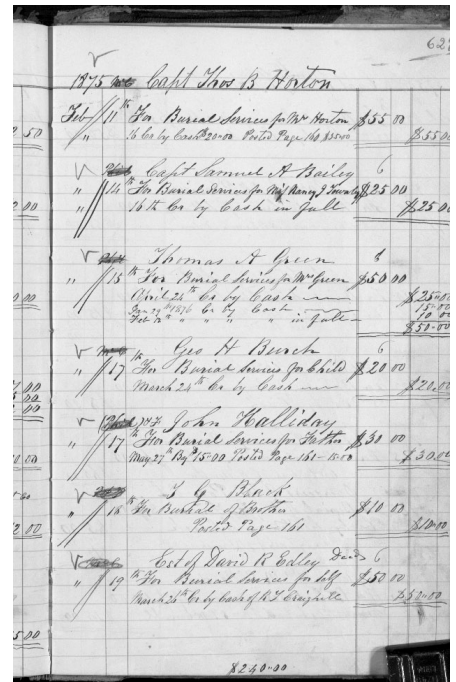 627
1875 Capt Thos B Horton
Feb 11th For Burial Services for Mr Horton $55 00
" 16 Cr by Cash $20=00 Posted Page 160 $35=00 $55 00
Capt Samuel A Bailey 6
" 14th For Burial Services for Nancy J $25 00
" 16th Cr by Cash in full $25 00
Thomas A Green 6
" 15th For Burial Services for Mrs Green $50 00
April 24th Cr by Cash $25=00
Jan 29th 1876 Cr by Cash 15=00
Feb " " " " in full 10 00
$50=00
Geo H Burch 6
" 17th For Burial Services for Child $20 00
March 24th Cr by Cash $20,00
John Halliday
" 17th For Burial Services for Father $30 00
May 27th By $15=00 Posted Page 161 - 15=00 $30 00
Black
" 18th For Burial of Brother $10 00
Posted Page 161 $10=00
Est of David R Edley Decd 6
" 19th For Burial Services for Self $50 00
March 26th Cr by Cash of $50=00
$240=00
2 50
2 00
0 00
7 00
5 00
00
0 00
2 00
5 00